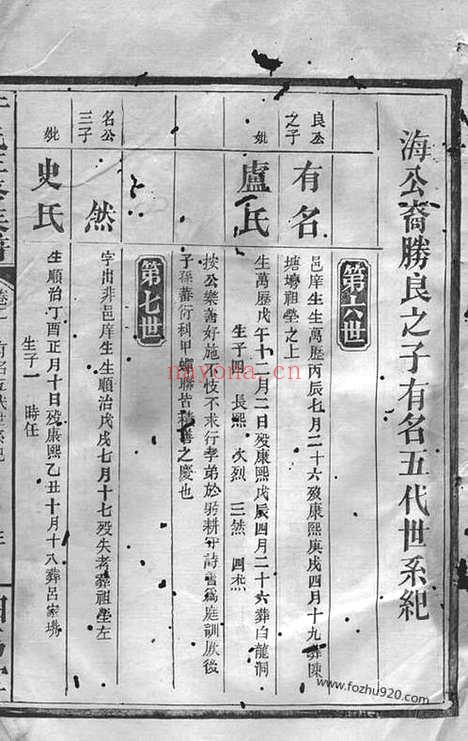 海公裔勝良之子有名五代世系紀
第六世
良丞之子
有名
邑庠生生萬歷丙辰七月二十六歿康熙庚戌四月十九葬陳
塘塲祖塋之上
妣
盧氏
生萬歷戊午十二月二日歿康熙戊辰四月二十六葬白龍洞
生子四 長熙 次烈 三然 四焘
按公樂善好施不忮不求行孝弟於躬耕守詩書爲庭訓厥後
子孫蕃衍科甲蟬聯皆積善之慶也
第七世
名公三子
然
字出非邑庠生生順治戊戌七月十七歿失考葬祖塋左
妣
史氏
生順治丁酉正月十日歿康熙乙丑十月十八葬呂家塆
生子一 時任
nayona.cn
www.fozhu920.com